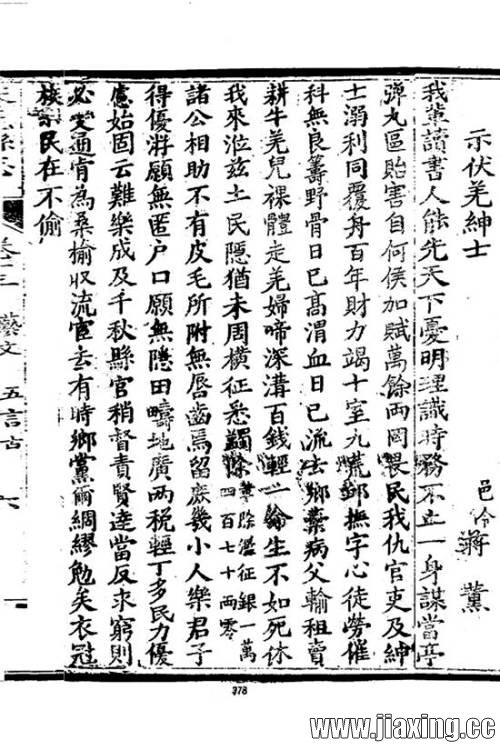 示伏羌紳士
邑令蔣薰
我輩讀書人能先天下憂明理識時務不立一身謀當亭
彈丸區貽害自何侯加賦萬餘兩罔畏民我仇官吏及紳
士溺利同覆舟百年財力竭十室九荒撫字心徒勞催
科無良籌野骨日已髙渭血日已流去鄉橐病父輸租賣
耕牛羌兒裸體走羌婦啼深溝百錢輕一生不如死休
我來涖兹土民隱猶未周橫征悉蠲除
蠲除濫征銀一萬
四百七十両零
諸公相助不有皮毛所附無唇齒焉留庶幾小人樂君子
得優游願無匿户口願無隱田疇地廣两税輕丁多民力優
慮始固云難樂成及千秋縣官稍督責賢達當反求窮則
必变通肯為桑榆収流官去有時鄉黨爾綢繆勉矣衣冠
族民在不偷
卷十三 藝文 五言古 六
378
www.jiaxing.cc